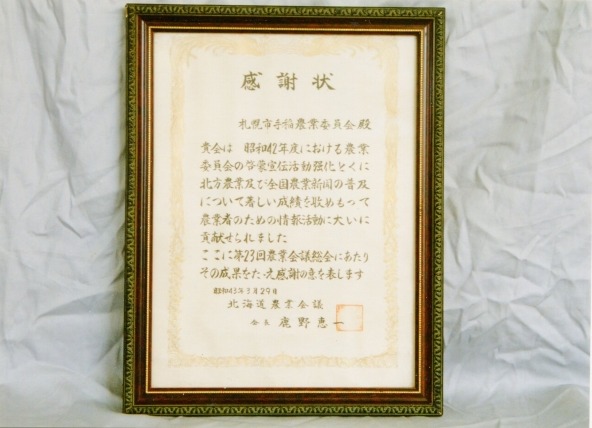 感謝状
札幌市手稲農業委員会殿
貴会は 昭和42年度における農業
委員会の啓蒙宣伝活動强化とくに
北方農業及び全国農業新聞の普及
について著しい成績を收めもって
農業者のための情報活動に大いに
貢献せられました
ここに第23回農業会議総会にあたり
その成果をたゝえ感謝の意を表します
昭和43年3月29日
北海道農業会議
会長 鹿野恵一